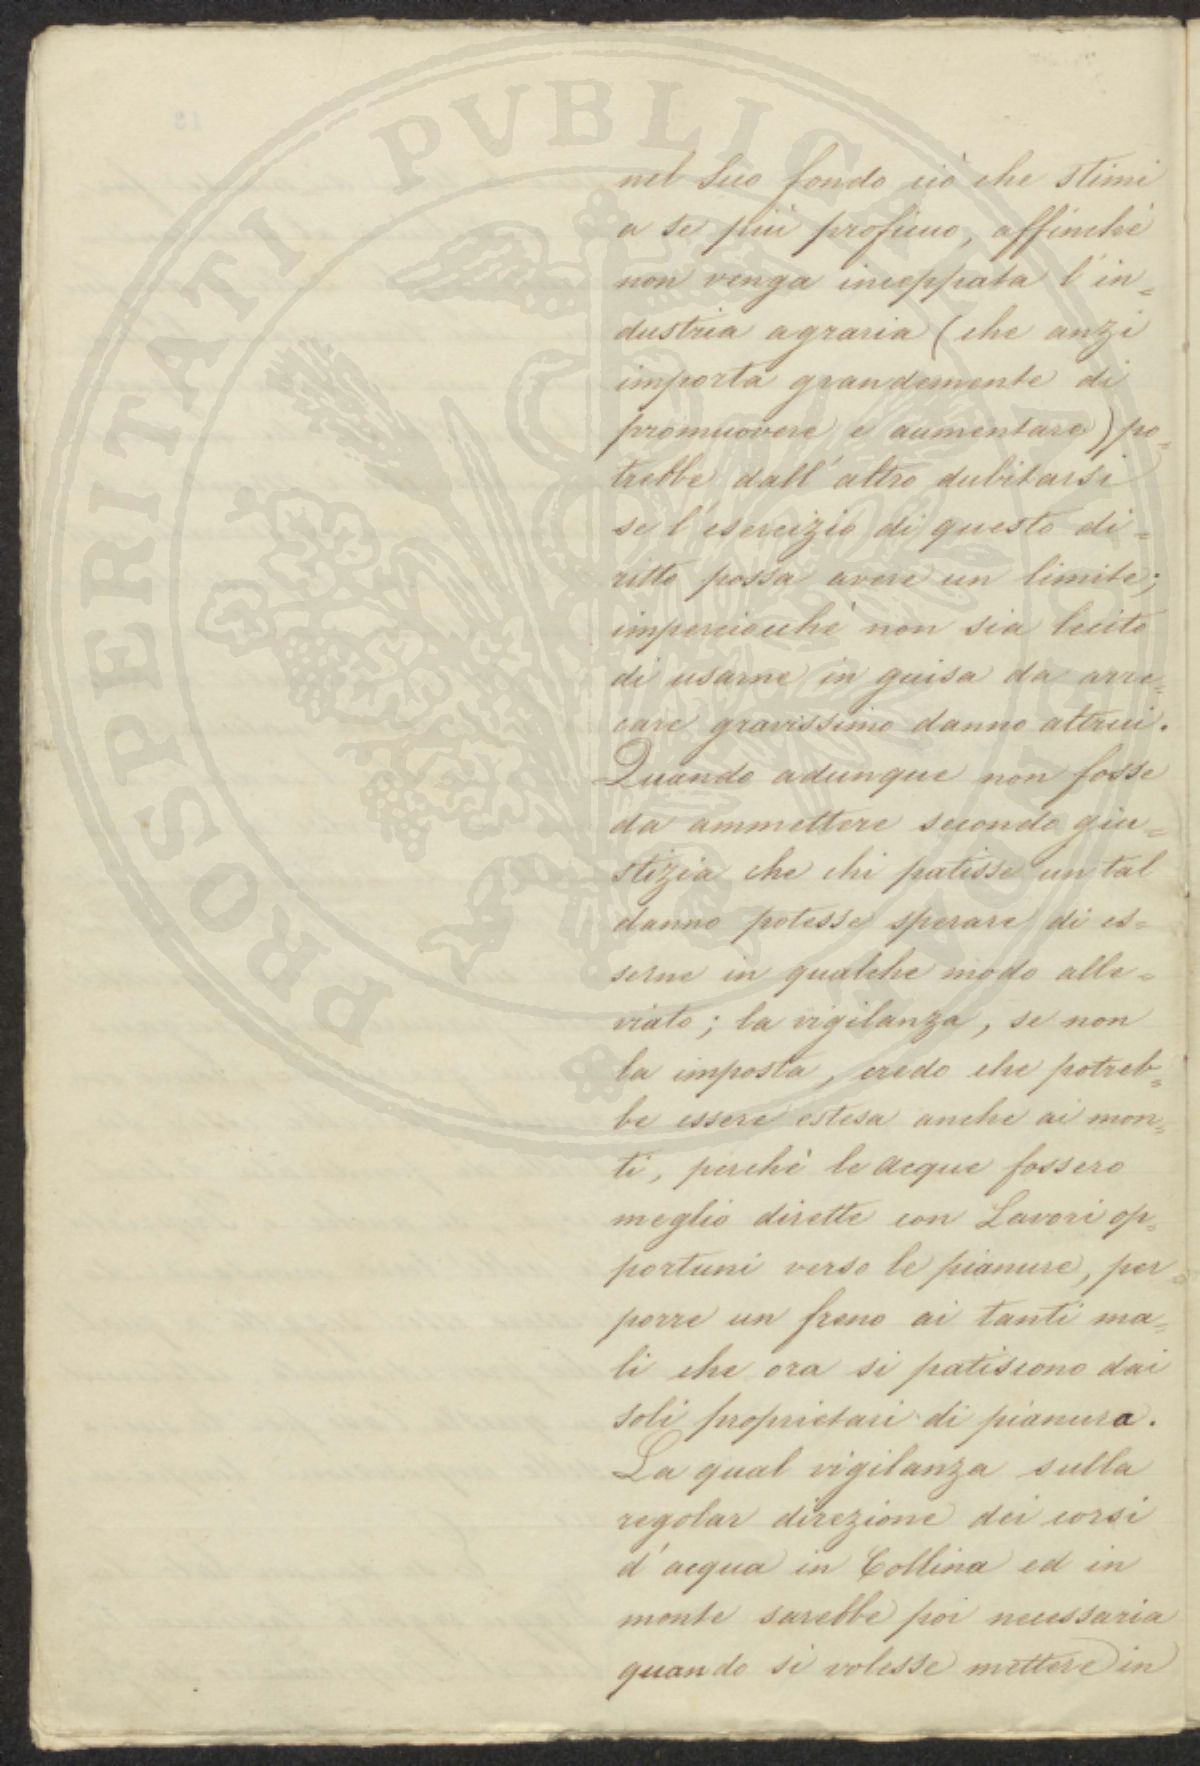 PROSPERITATI PVBLICAE AVGENDAE
nel suo fondo ciò che stimi
a se più proficuo, affinchè
non venga inceppata l'in=
dustria agraria (che anzi
importa grandemente di
promuovere e aumentare) po=
trebbe dall'altro dubitarsi
se l'esercizio di questo di=
ritto possa avere un limite;
imperciocchè non sia lecito
di usarne in guisa da arre=
care gravissimo danno altrui.
Quando adunque non fosse
da ammettere secondo giu=
stizia che chi patisse un tal
danno potesse sperare di es=
serne in qualche modo alle=
viato; la vigilanza, se non
la imposta, credo che potreb=
be essere estesa anche ai mon=
ti, perchè le acque fossero
meglio dirette con Lavori op=
portuni verso le pianure, per
porre un freno ai tanti ma=
li che ora si patiscono dai
soli proprietari di pianura.
La qual vigilanza sulla
regolar direzione dei corsi
d'acqua in Collina ed in
monte sarebbe poi necessaria
quando si volesse mettere in